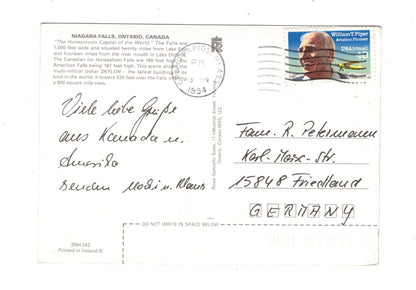 NIAGARA FALLS, ONTARIO, CANADA
"The Honeymoon Capital of the World." The Falls are
1,000 feet wide and situated twenty miles from Lake
and fourteen miles from the river mouth in Lake
The Canadian (or Horseshoe) Falls are 180 feet high
American Falls being 187 feet high. This scene shows
multi-million dollar SKYLON - the tallest building
kind in the world. It towers 520 feet over the Falls
a 600 square mile view.
GRAND RAPIDS MI
PM
1994
William T. Piper
Aviation Pioneer
USAirmail
40
Viele liebe Grüße
aus Kanada u.
Amerika
senden u. Klaus
Fam. R. Petermann
Karl-Marx-Str.
15848 Friedland
GERMANY
DO NOT WRITE IN SPACE BELOW
Printed in Ireland ©